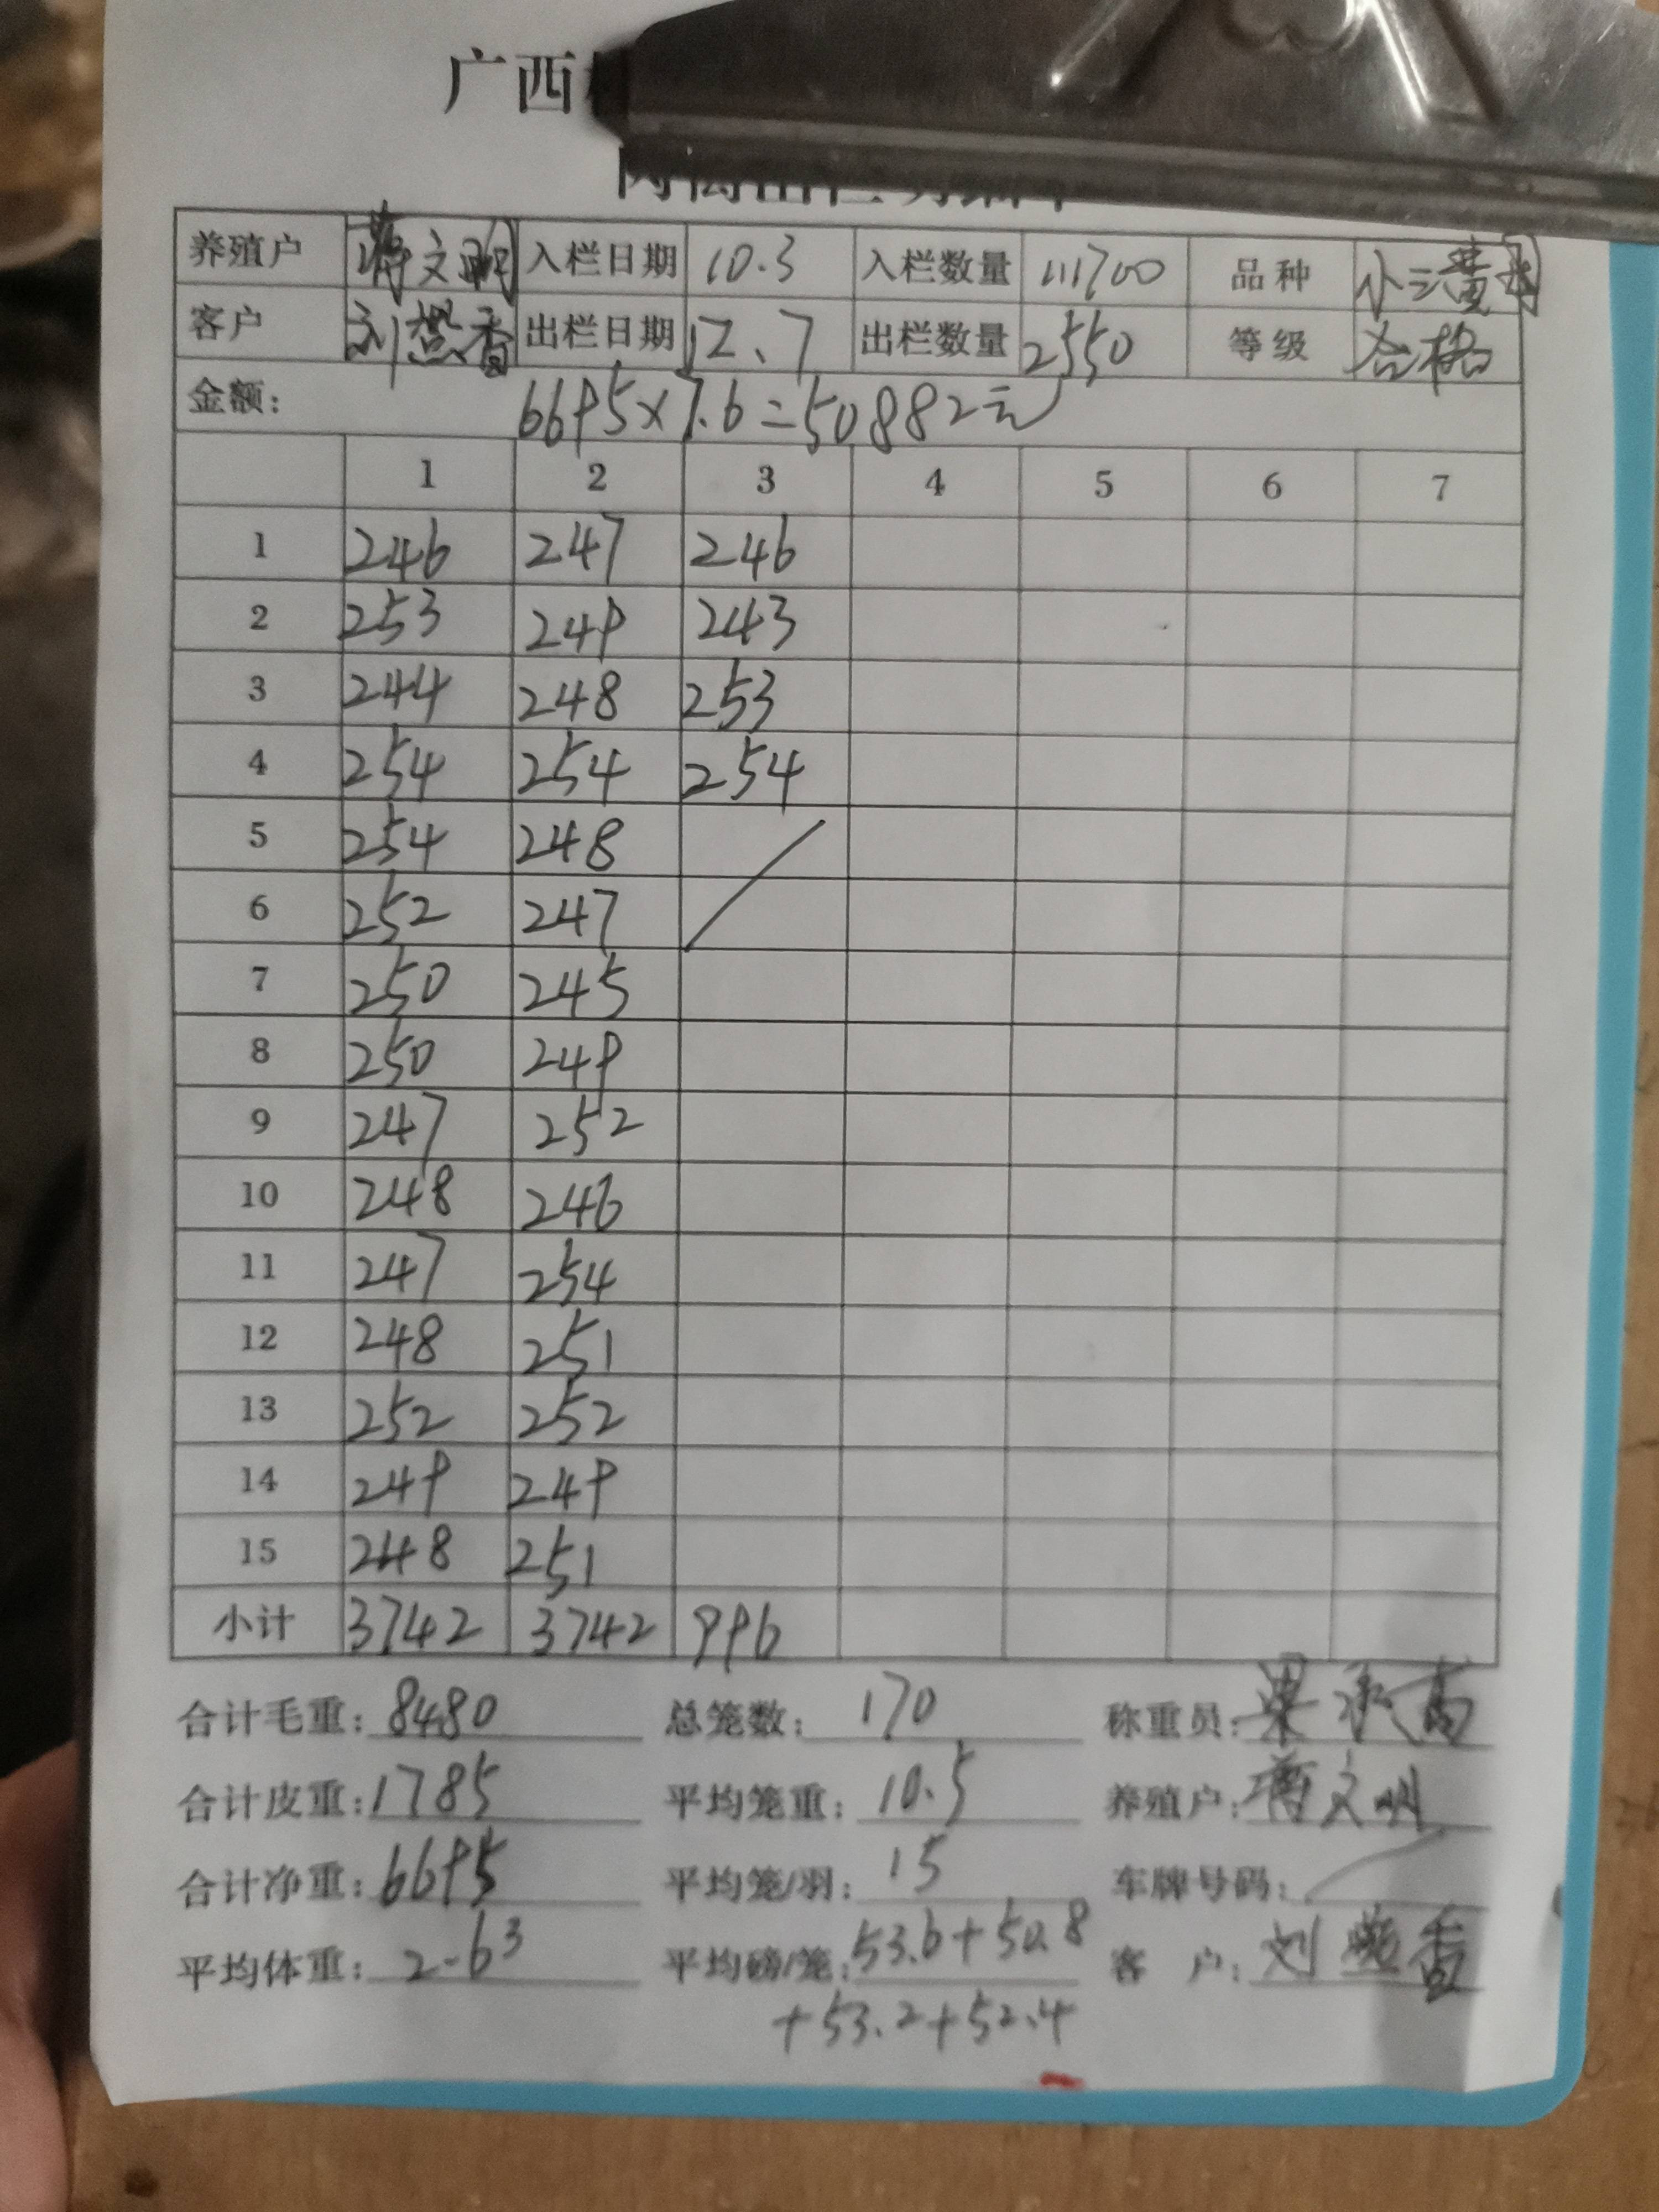 广西
养殖户 蒋文明 入栏日期 10.3 入栏数量 11700 品种 小三黄
客户 刘燕香 出栏日期 12.7 出栏数量 2550 等级 合格
金额: 6695×7.6=50882元
1 2 3 4 5 6 7
1 246 247 246
2 253 249 243
3 244 248 253
4 254 254 254
5 254 248
6 252 247
7 250 245
8 250 249
9 247 252
10 248 246
11 247 254
12 248 251
13 252 252
14 249 249
15 248 251
小计 3742 3742 996
合计毛重: 8480 总笼数: 170 称重员:
合计皮重: 1785 平均笼重: 10.5 养殖户: 蒋文明
合计净重: 6695 平均笼/羽: 15 车牌号码:
平均体重: 2.63 平均磅/笼: 53.6+50.8 客 户: 刘燕香
+53.2+52.4